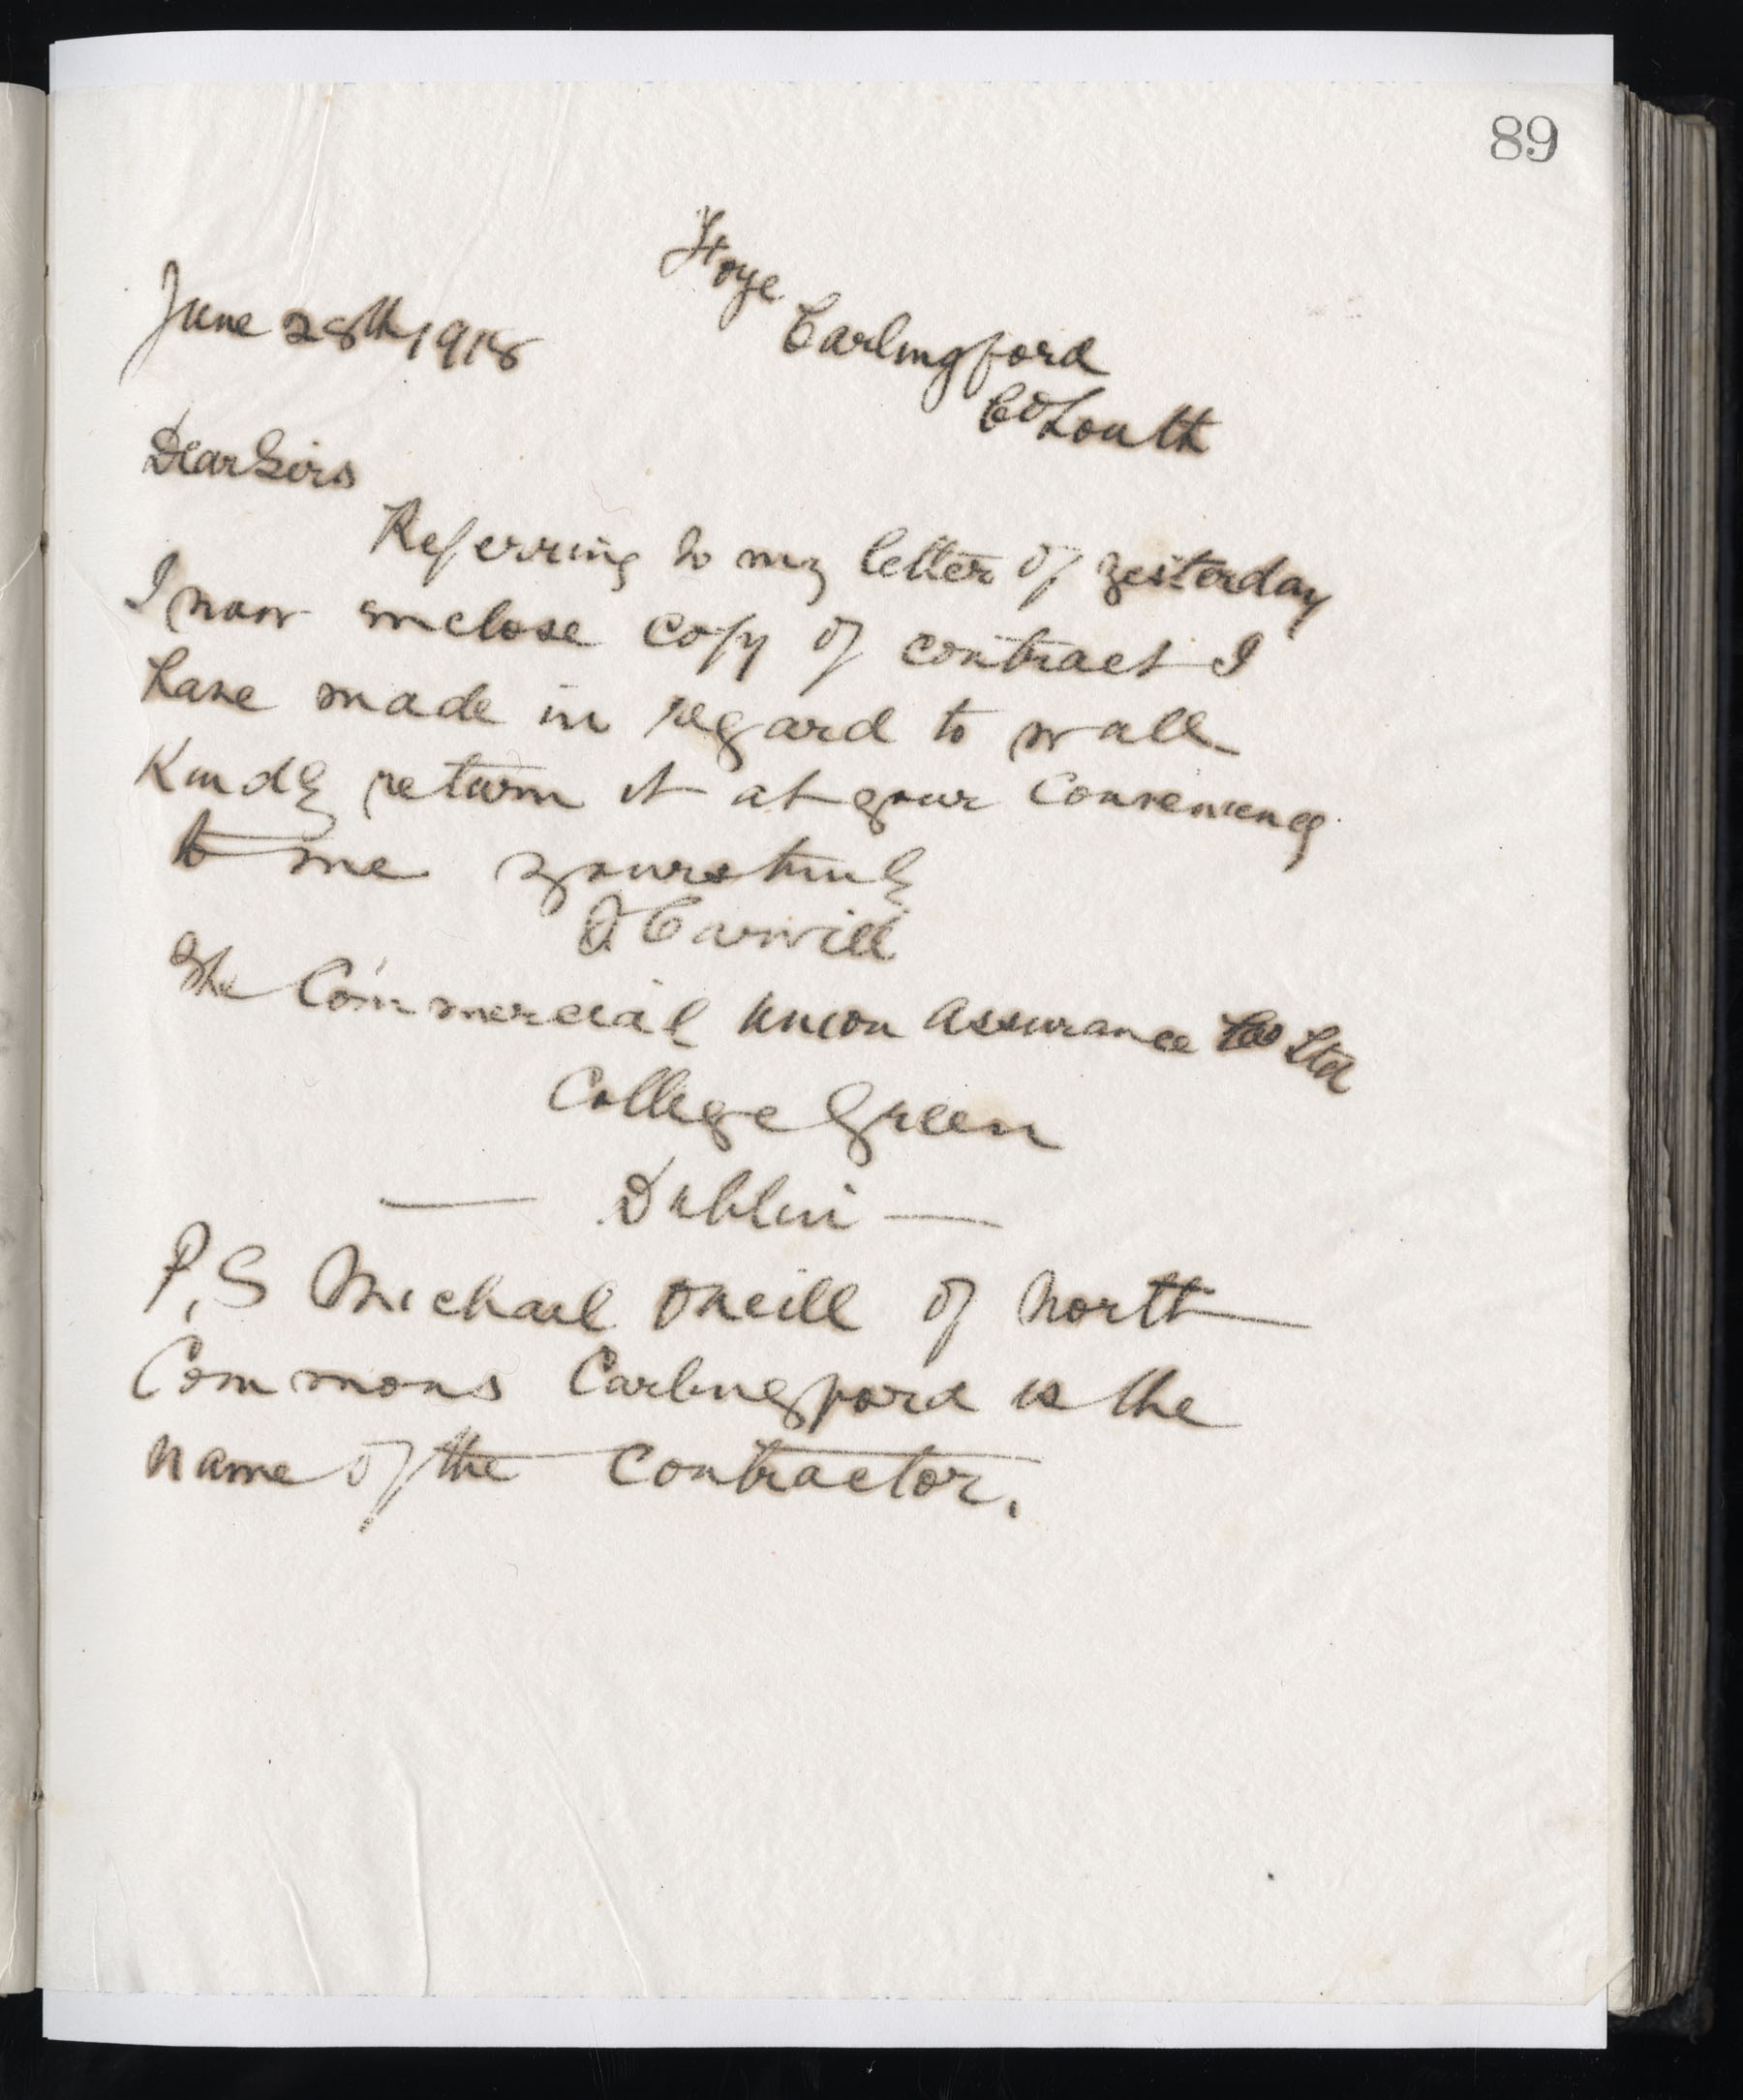 89
Foye
Carlingford
Co Louth
June 28th 1918
Dear Sirs
Referring to my letter of yesterday
I now enclose copy of contract I
have made in regard to wall
Kindly return it at your convenience
to me yours truly
F Carvill
The Commercial Union Assurance Co Ltd
College Green
Dublin
P.S Michael ONeill of North
Commons Carlingford is the
name of the contractor.